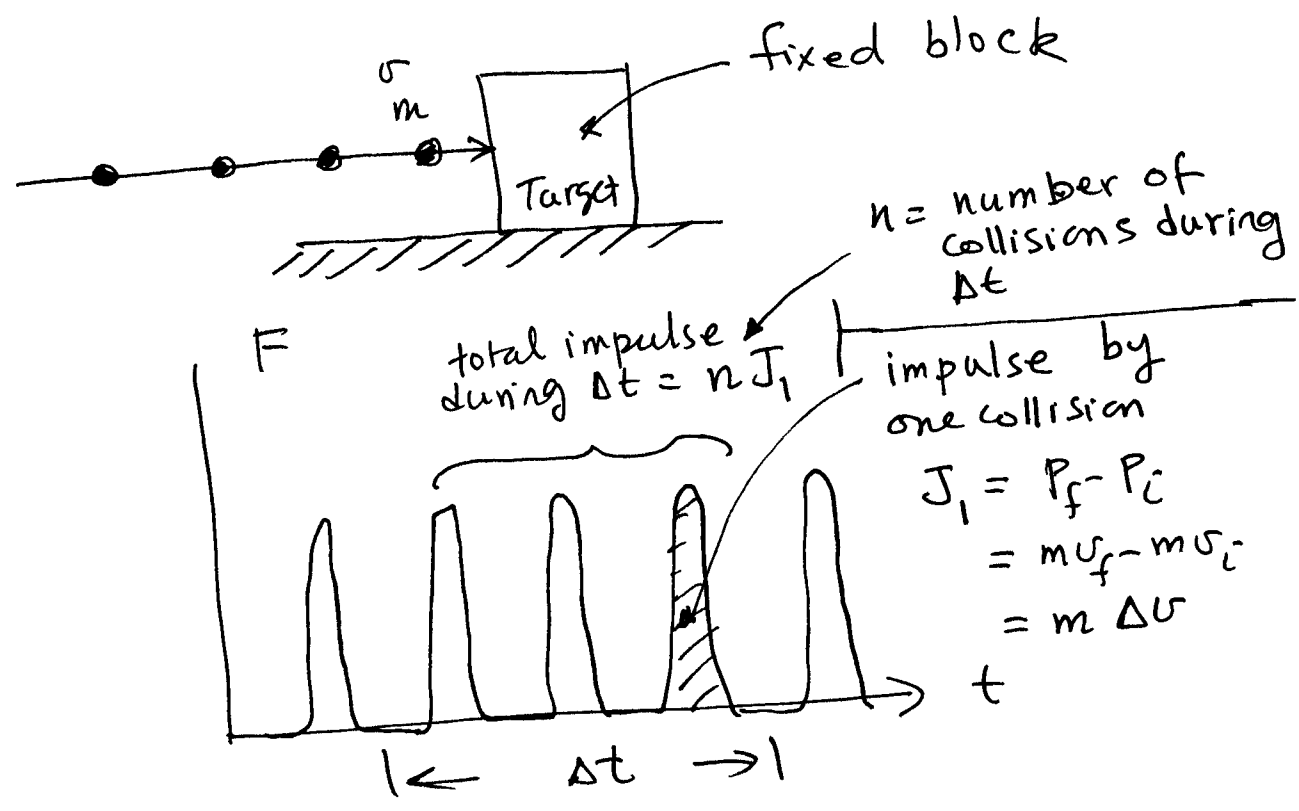 fixed block
v
m
Target
n = number of
collisions during
Δt
F
total impulse
during Δt = n J₁
impulse by
one collision
J₁ = P_f - P_i
= mv_f - mv_i
= m Δv
t
Δt